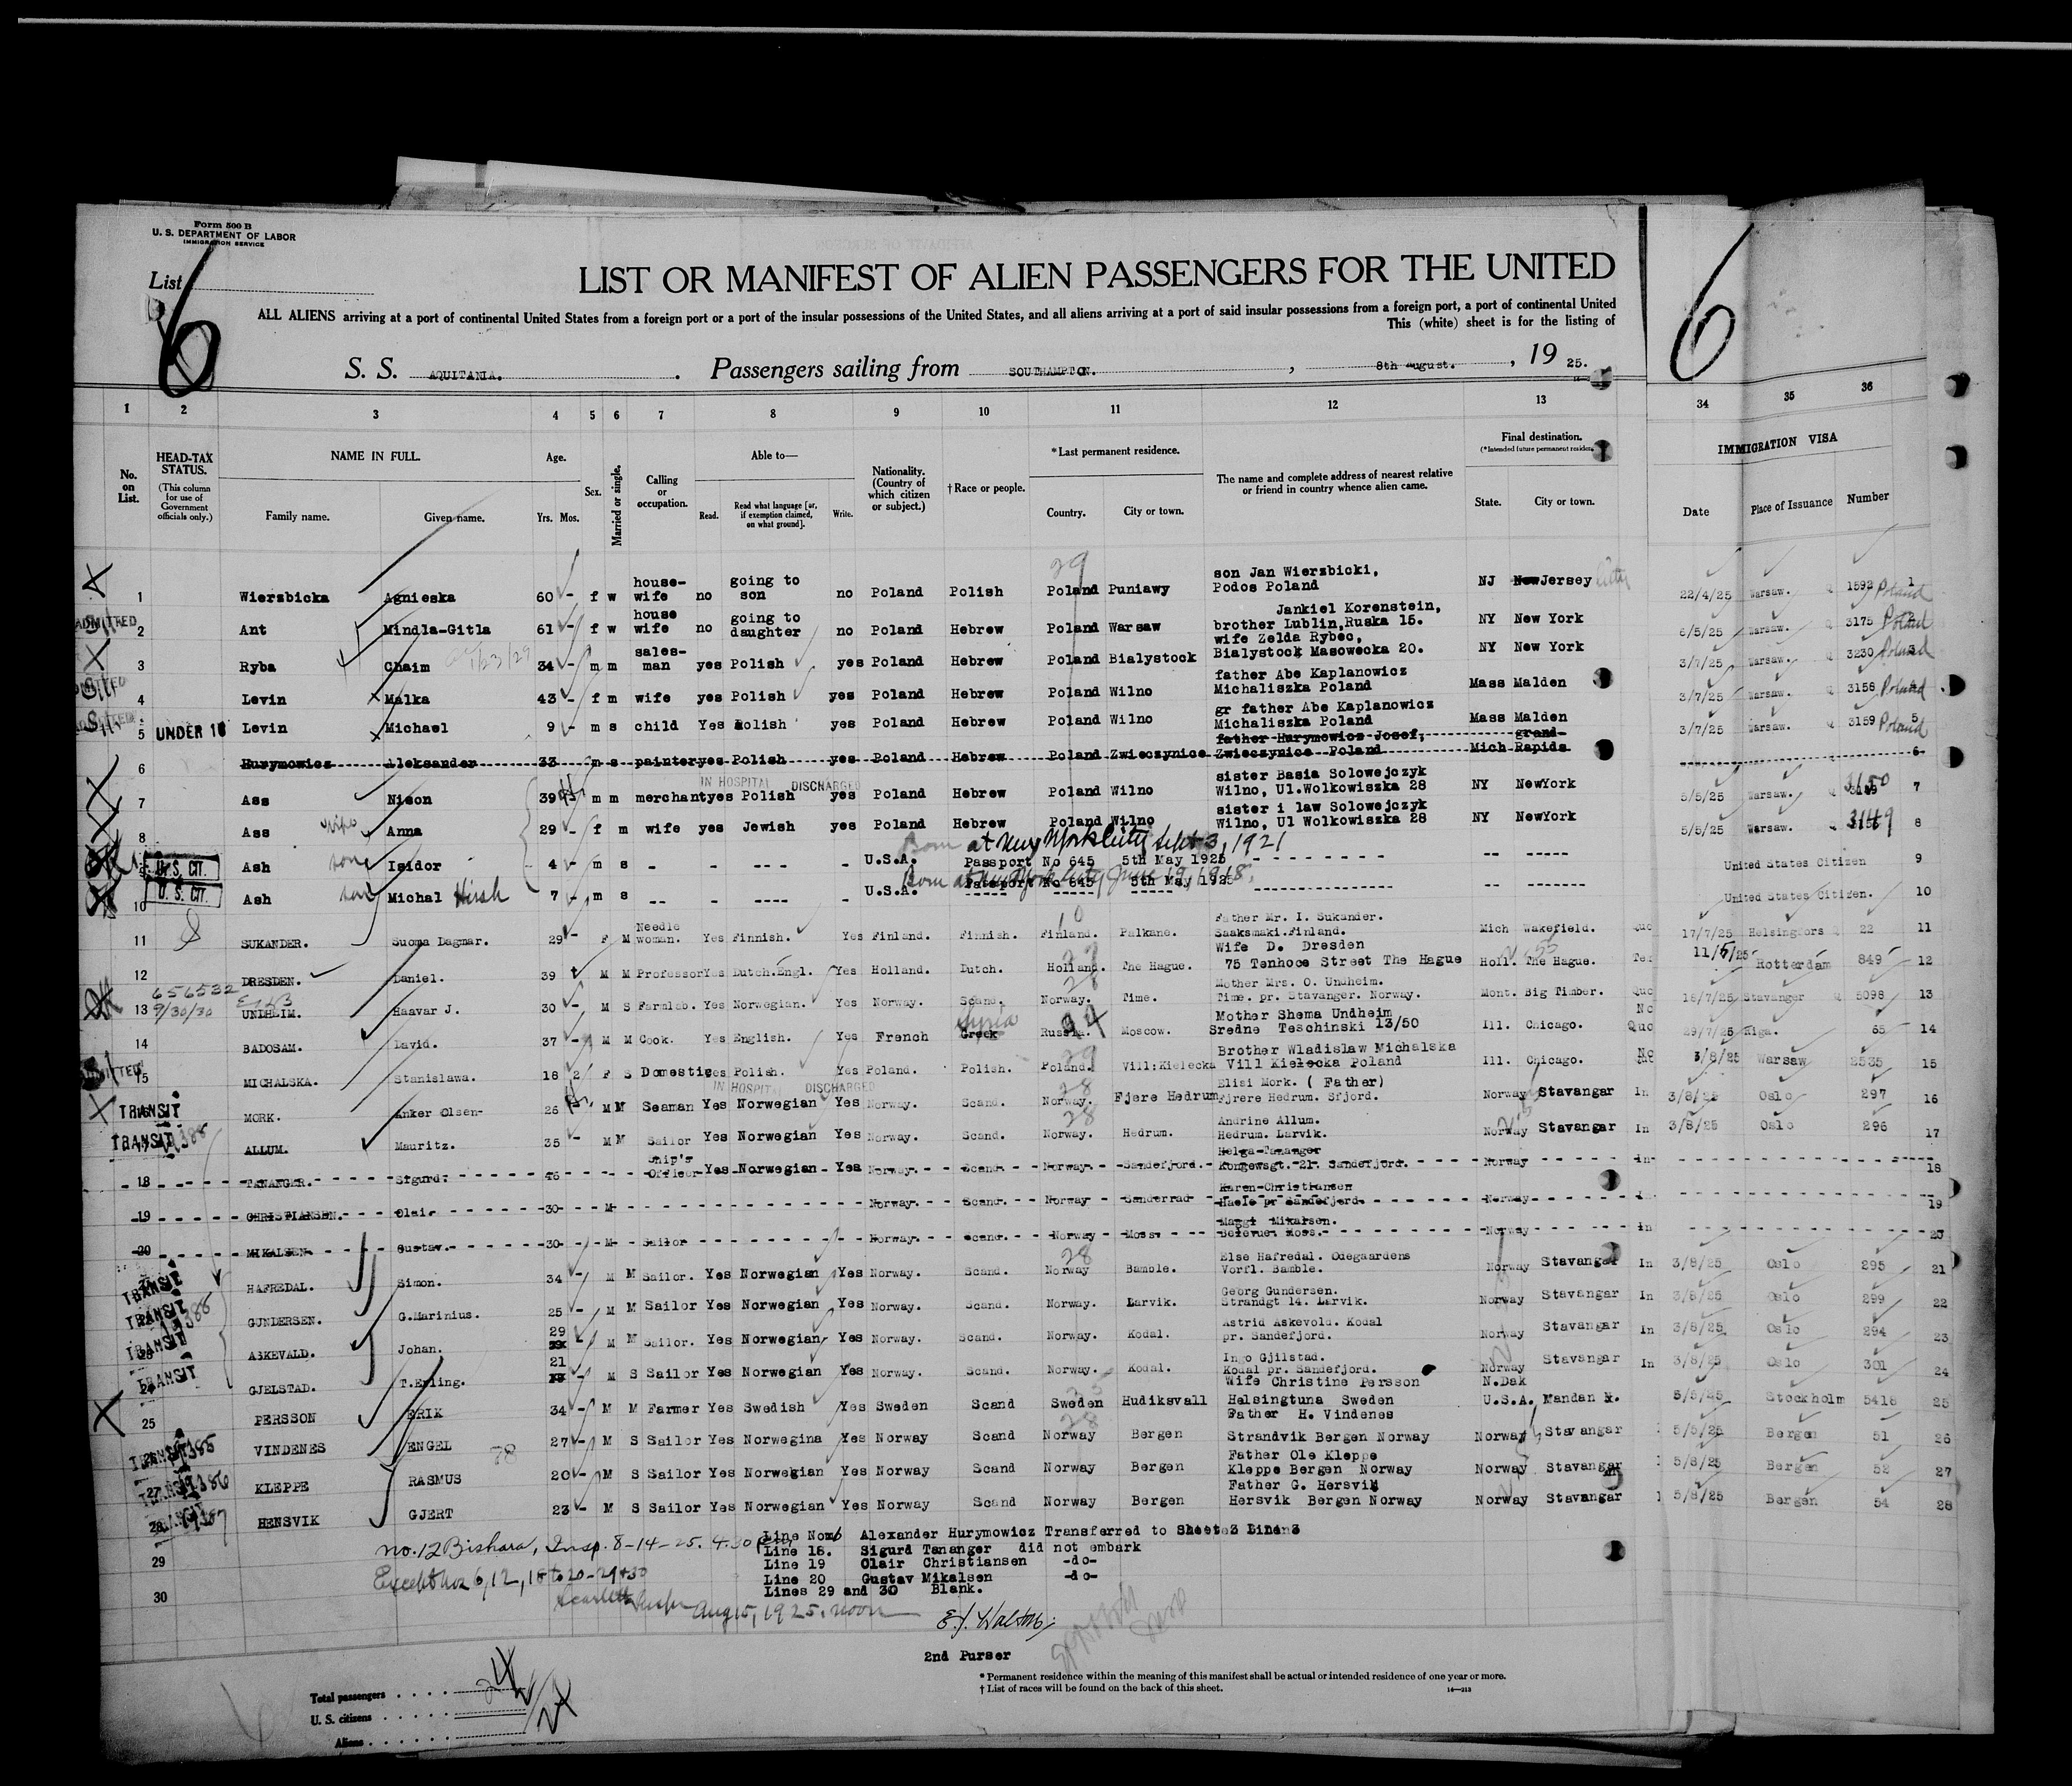 Form 500 B
U. S. DEPARTMENT OF LABOR
IMMIGRATION SERVICE
List
6
6
LIST OR MANIFEST OF ALIEN PASSENGERS FOR THE UNITED
ALL ALIENS arriving at a port of continental United States from a foreign port or a port of the insular possessions of the United States, and all aliens arriving at a port of said insular possessions from a foreign port, a port of continental United
This (white) sheet is for the listing of
S. S. AQUITANIA. Passengers sailing from SOUTHAMPTON. , 8th August. , 19 25.
1 2 3 4 5 6 7 8 9 10 11 12 13 34 35 36
No. on List.
HEAD-TAX STATUS. (This column for use of Government officials only.)
NAME IN FULL. Family name. Given name.
Age. Yrs. Mos.
Sex.
Married or single.
Calling or occupation.
Able to— Read. Read what language [or, if exemption claimed, on what ground]. Write.
Nationality. (Country of which citizen or subject.)
† Race or people.
* Last permanent residence. Country. City or town.
The name and complete address of nearest relative or friend in country whence alien came.
Final destination. (* Intended future permanent residence) State. City or town.
IMMIGRATION VISA Date Place of Issuance Number
1 Wierzbicka Agnieska 60 - f w house-wife no going to son no Poland Polish Poland Puniawy son Jan Wierzbicki, Podos Poland NJ New Jersey City 22/4/25 Warsaw. Q 1592 Poland 1
ADMITTED 2 Ant Mindla-Gitla 61 - f w house wife no going to daughter no Poland Hebrew Poland Warsaw Jankiel Korenstein, brother Lublin,Ruska 15. NY New York 6/5/25 Warsaw. Q 3175 Poland 2
3 Ryba Chaim 34 - m m sales-man yes Polish yes Poland Hebrew Poland Bialystock wife Zelda Rybec, Bialystock Masowecka 20. NY New York 3/7/25 Warsaw. Q 3230 Poland 3
4 Levin Malka 43 - f m wife yes Polish yes Poland Hebrew Poland Wilno father Abe Kaplanowicz Michaliszka Poland Mass Malden 3/7/25 Warsaw. Q 3158 Poland
5 UNDER 16 Levin Michael 9 - m s child Yes Polish yes Poland Hebrew Poland Wilno gr father Abe Kaplanowicz Michaliszka Poland Mass Malden 3/7/25 Warsaw. Q 3159 Poland 5
6 Hurymowicz Aleksander 33 m s painter yes Polish yes Poland Hebrew Poland Zwieczynice father Hurymowicz Josef, Zwieczynice Poland Mich grand-Rapids 6
IN HOSPITAL DISCHARGED
7 Ass Nison 39 m m merchant yes Polish yes Poland Hebrew Poland Wilno sister Basia Solowejczyk Wilno, Ul.Wolkowiszka 28 NY NewYork 5/5/25 Warsaw. 3150 7
8 Ass wife Anna 29 - f m wife yes Jewish yes Poland Hebrew Poland Wilno sister i law Solowejczyk Wilno, Ul Wolkowiszka 28 NY NewYork 5/5/25 Warsaw. Q 3149 8
Born at New York City Sept 3, 1921
U. S. CIT. Ash son Isidor 4 - m s - - ---- - U.S.A. Passport No 645 5th May 1925 -- ----- United States Citizen 9
Born at New York City June 19, 1918.
10 U. S. CIT. Ash son Michal Hirsh 7 - m s -- - ---- - U.S.A. Passport No 645 5th May 1925 -- ----- United States Citizen. 10
11 SUKANDER. Suoma Dagmar. 29 - F M Needle woman. Yes Finnish. Yes Finland. Finnish. Finland. Palkane. Father Mr. I. Sukander. Saaksmaki.Finland. Mich Wakefield. Quo 17/7/25 Helsingfors Q 22 11
12 DRESDEN. Daniel. 39 M M Professor Yes Dutch.Engl. Yes Holland. Dutch. Holland. The Hague. Wife D. Dresden 75 Tenhoce Street The Hague Holl. The Hague. 11/5/25 Rotterdam 849 12
656532
13 9/30/30 UNDHEIM. Haavar J. 30 - M S Farmlab. Yes Norwegian. Yes Norway. Scand. Norway. Time. Mother Mrs. O. Undheim. Time. pr. Stavanger. Norway. Mont. Big Timber. Quo 18/7/25 Stavanger Q 5098 13
14 BADOSAM. David. 37 - M M Cook. Yes English. Yes French Greek Syria Russia. Moscow. Mother Shema Undheim Sredne Teschinski 13/50 Ill. Chicago. No Quo 29/7/25 Riga. 65 14
15 MICHALSKA. Stanislawa. 18 2 F S Domestic yes Polish. Yes Poland. Polish. Poland. Vill:Kielecka Brother Wladislaw Michalska Vill Kielecka Poland Ill. Chicago. No 3/8/25 Warsaw 2535 15
IN HOSPITAL DISCHARGED
TRANSIT MORK. Anker Olsen- 26 M M Seaman Yes Norwegian Yes Norway. Scand. Norway. Fjere Hedrum Elisi Mork. ( Father) Fjrere Hedrum. Sfjord. Norway Stavangar In 3/8/25 Oslo 297 16
TRANSIT ALLUM. Mauritz. 35 - M M Sailor Yes Norwegian Yes Norway. Scand. Norway. Hedrum. Andrine Allum. Hedrum. Larvik. Norway Stavangar In 3/8/25 Oslo 296 17
18 TANANGER. Sigurd. 46 Ship's Officer Yes Norwegian Yes Norway. Scand. Norway. Sandefjord. Helga Tananger Kongewsgt. 21. Sandefjord. Norway In 18
19 CHRISTIANSEN. Olai. 30 M Norway. Scand. Norway Sanderrad Karen Christiansen Hasle pr Sandefjord. Norway 19
20 MIKALSEN Gustav. 30 M Sailor Norway. Scand. Norway Moss. Maggi Mikalsen. Bellevue. Moss. Norway In 20
TRANSIT HAFREDAL. Simon. 34 - M M Sailor. Yes Norwegian Yes Norway. Scand. Norway Bamble. Else Hafredal. Odegaardens Vorfl. Bamble. Norway Stavangar In 3/8/25 Oslo 295 21
TRANSIT GUNDERSEN. G.Marinius. 25 - M M Sailor Yes Norwegian Yes Norway. Scand. Norway. Larvik. Georg Gundersen. Strandgt 14. Larvik. Norway Stavangar In 3/8/25 Oslo 299 22
TRANSIT ASKEVALD. Johan. 29 - M M Sailor. Yes Norwegian Yes Norway. Scand. Norway. Kodal. Astrid Askevold. Kodal pr. Sandefjord. Norway Stavangar In 3/8/25 Oslo 294 23
TRANSIT GJELSTAD. T.Erling. 21 - M S Sailor Yes Norwegian Yes Norway. Scand. Norway. Kodal. Ingo Gjilstad. Kodal pr. Sandefjord. Norway Stavangar In 3/8/25 Oslo 301 24
25 PERSSON ERIK 34 - M M Farmer Yes Swedish Yes Sweden Scand Sweden Hudiksvall Wife Christine Persson Helsingtuna Sweden N.Dak U.S.A. Mandan 5/8/25 Stockholm 5418 25
TRANSIT VINDENES ENGEL 27 - M S Sailor Yes Norwegina Yes Norway Scand Norway Bergen Father H. Vindenes Strandvik Bergen Norway Norway Stavangar 5/8/25 Bergen 51 26
27 KLEPPE RASMUS 20 - M S Sailor Yes Norwegian Yes Norway Scand Norway Bergen Father Ole Kleppe Kleppe Bergen Norway Norway Stavangar 5/8/25 Bergen 52 27
28 HENSVIK GJERT 23 - M S Sailor Yes Norwegian Yes Norway Scand Norway Bergen Father G. Hersvik Hersvik Bergen Norway Norway Stavangar 5/8/25 Bergen 54 28
29
30
no.12 Bishara, Insp. 8-14-25. 4.30 pm
Except nos 6, 12, 18 to 20 - 29+30
Aug 15, 1925. noon
Line No 6 Alexander Hurymowicz Transferred to Sheet 3 Line 3
Line 18. Sigurd Tananger did not embark
Line 19 Olair Christiansen -do-
Line 20 Gustav Mikalsen -do-
Lines 29 and 30 Blank.
2nd Purser
Total passengers 24
U. S. citizens
Aliens
* Permanent residence within the meaning of this manifest shall be actual or intended residence of one year or more.
† List of races will be found on the back of this sheet.
14—213